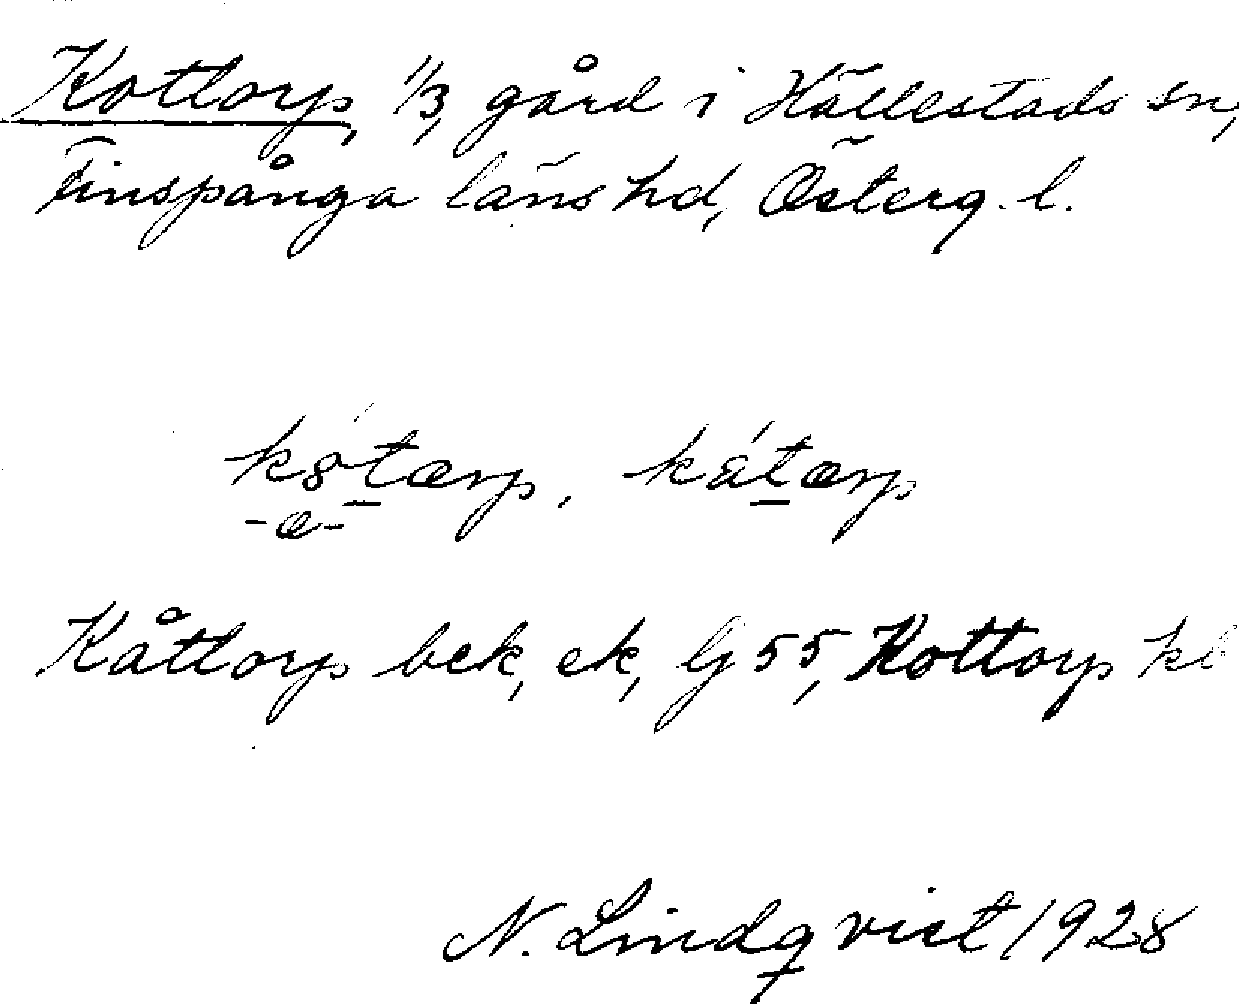 Kottorp, 1/3, gård i Hällestads sn,
Finspånga läns hd, Österg. l.
Kåttorp bek, ek, Gj 55, Kottorp kb
N. Lindqvist 1928